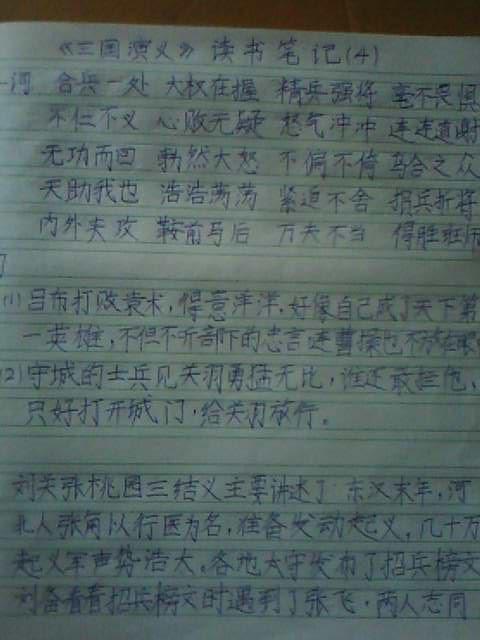 《三国演义》读书笔记(4)
词 合兵一处 大权在握 精兵强将 毫不畏惧
不仁不义 必败无疑 怒气冲冲 连连道谢
无功而回 勃然大怒 不偏不倚 乌合之众
天助我也 浩浩荡荡 紧追不舍 损兵折将
内外夹攻 鞍前马后 万夫不当 得胜班师
(1)吕布打败袁术，得意洋洋，好像自己成了天下第
一英雄，不但不听部下的忠言，连曹操也不放在眼
(2)守城的士兵见关羽勇猛无比，谁还敢拦他、
只好打开城门，给关羽放行。
刘关张桃园三结义主要讲述了 东汉末年，河
北人张角以行医为名，准备发动起义，几十万
起义军声势浩大，各地太守发布了招兵榜文
刘备看着招兵榜文时遇到了张飞，两人志同